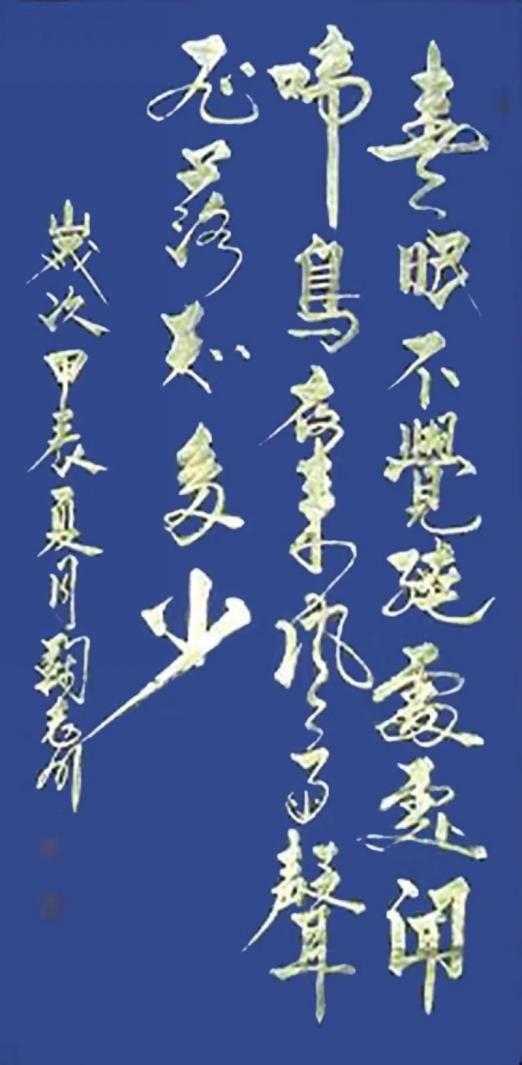 春眠不覺曉處處聞
啼鳥夜來風雨聲
花落知多少
歲次甲辰夏月